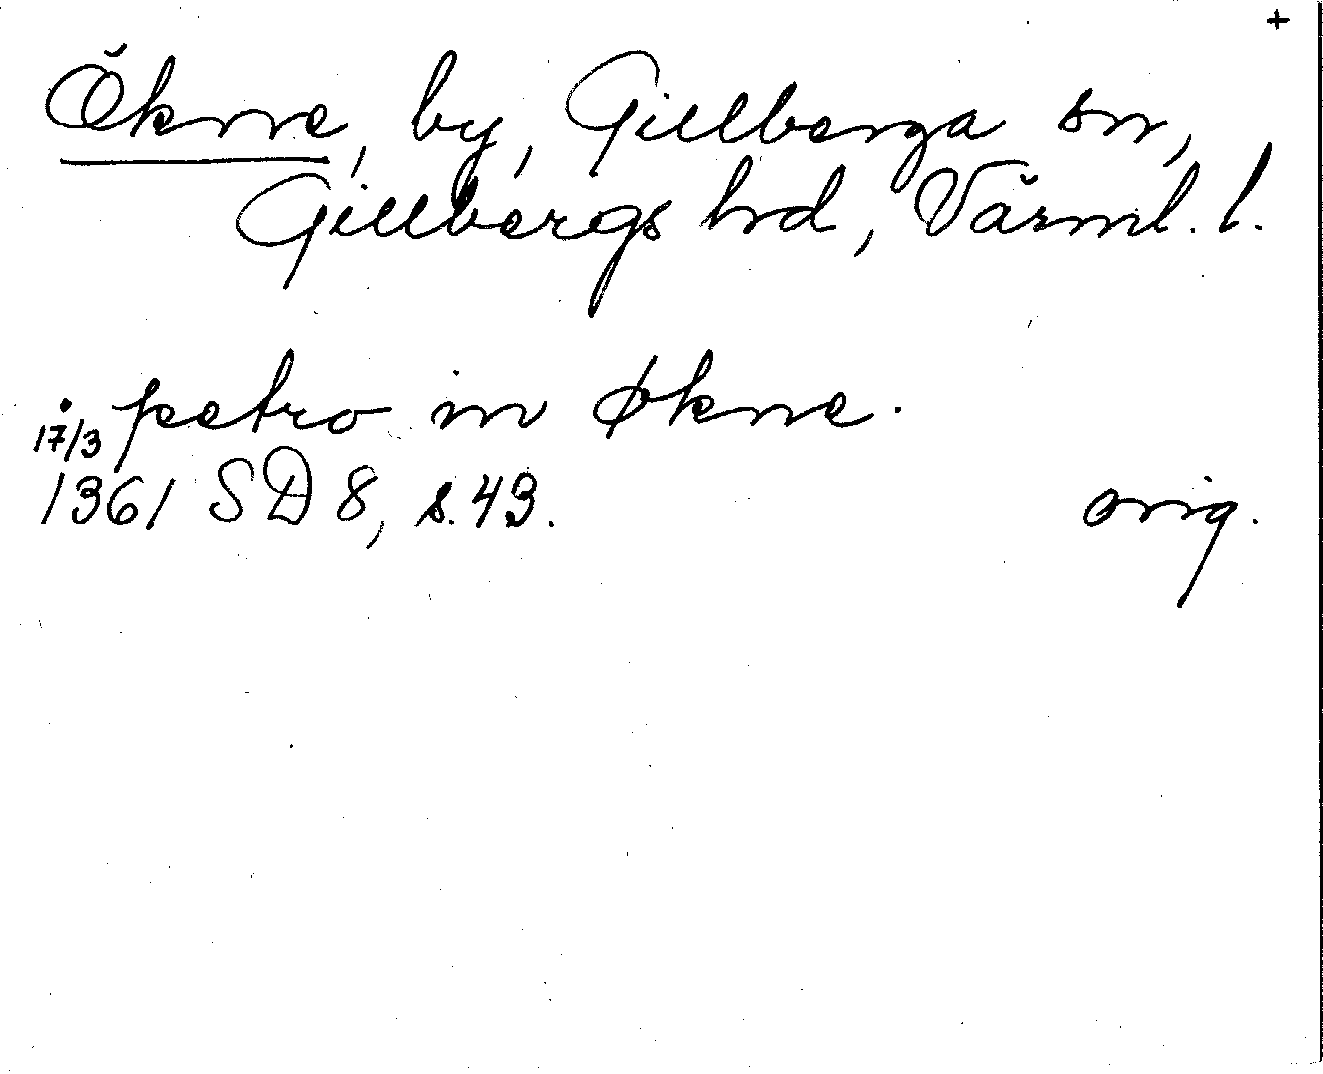 +
Ökne, by, Gillberga sn,
Gillbergs hd, Värml. l.
. petro in økne.
17/3
1361 SD 8, s. 43. orig.